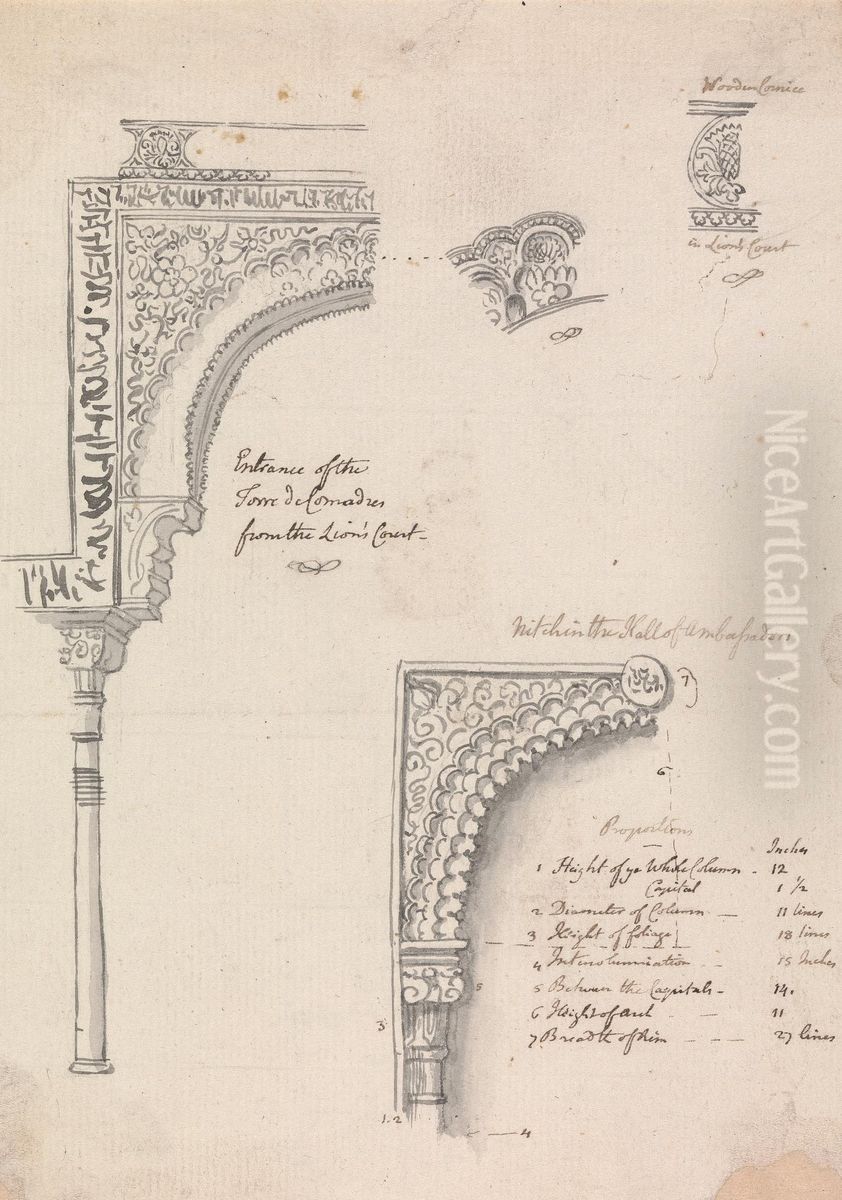 Wooden Cornice
in Lion's Court
Entrance of the
Torre de Comadres
from the Lion's Court
Nitch in the Hall of Ambassadors
7
6
Proportions
Inches
1 Height of ye Whole Column - 12
Capital 1 ½
2 Diameter of Column — 11 lines
3 Height of foliage 18 lines
4 Intercolumniation 15 Inches
5 Between the Capitals - 14.
6 Height of Arch - — 11
7 Breadth of Rim - — - 27 lines
5
3
1.2
4
NiceArtGallery.com